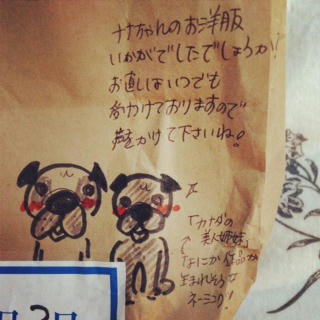 ナナちゃんのお洋服
いかがでしたでしょうか？
お直しはいつでも
受けておりますので
声をかけて下さいね!
「カナダの
美人姉妹」
て
なにか作品が
生まれそうな
ネーミング!